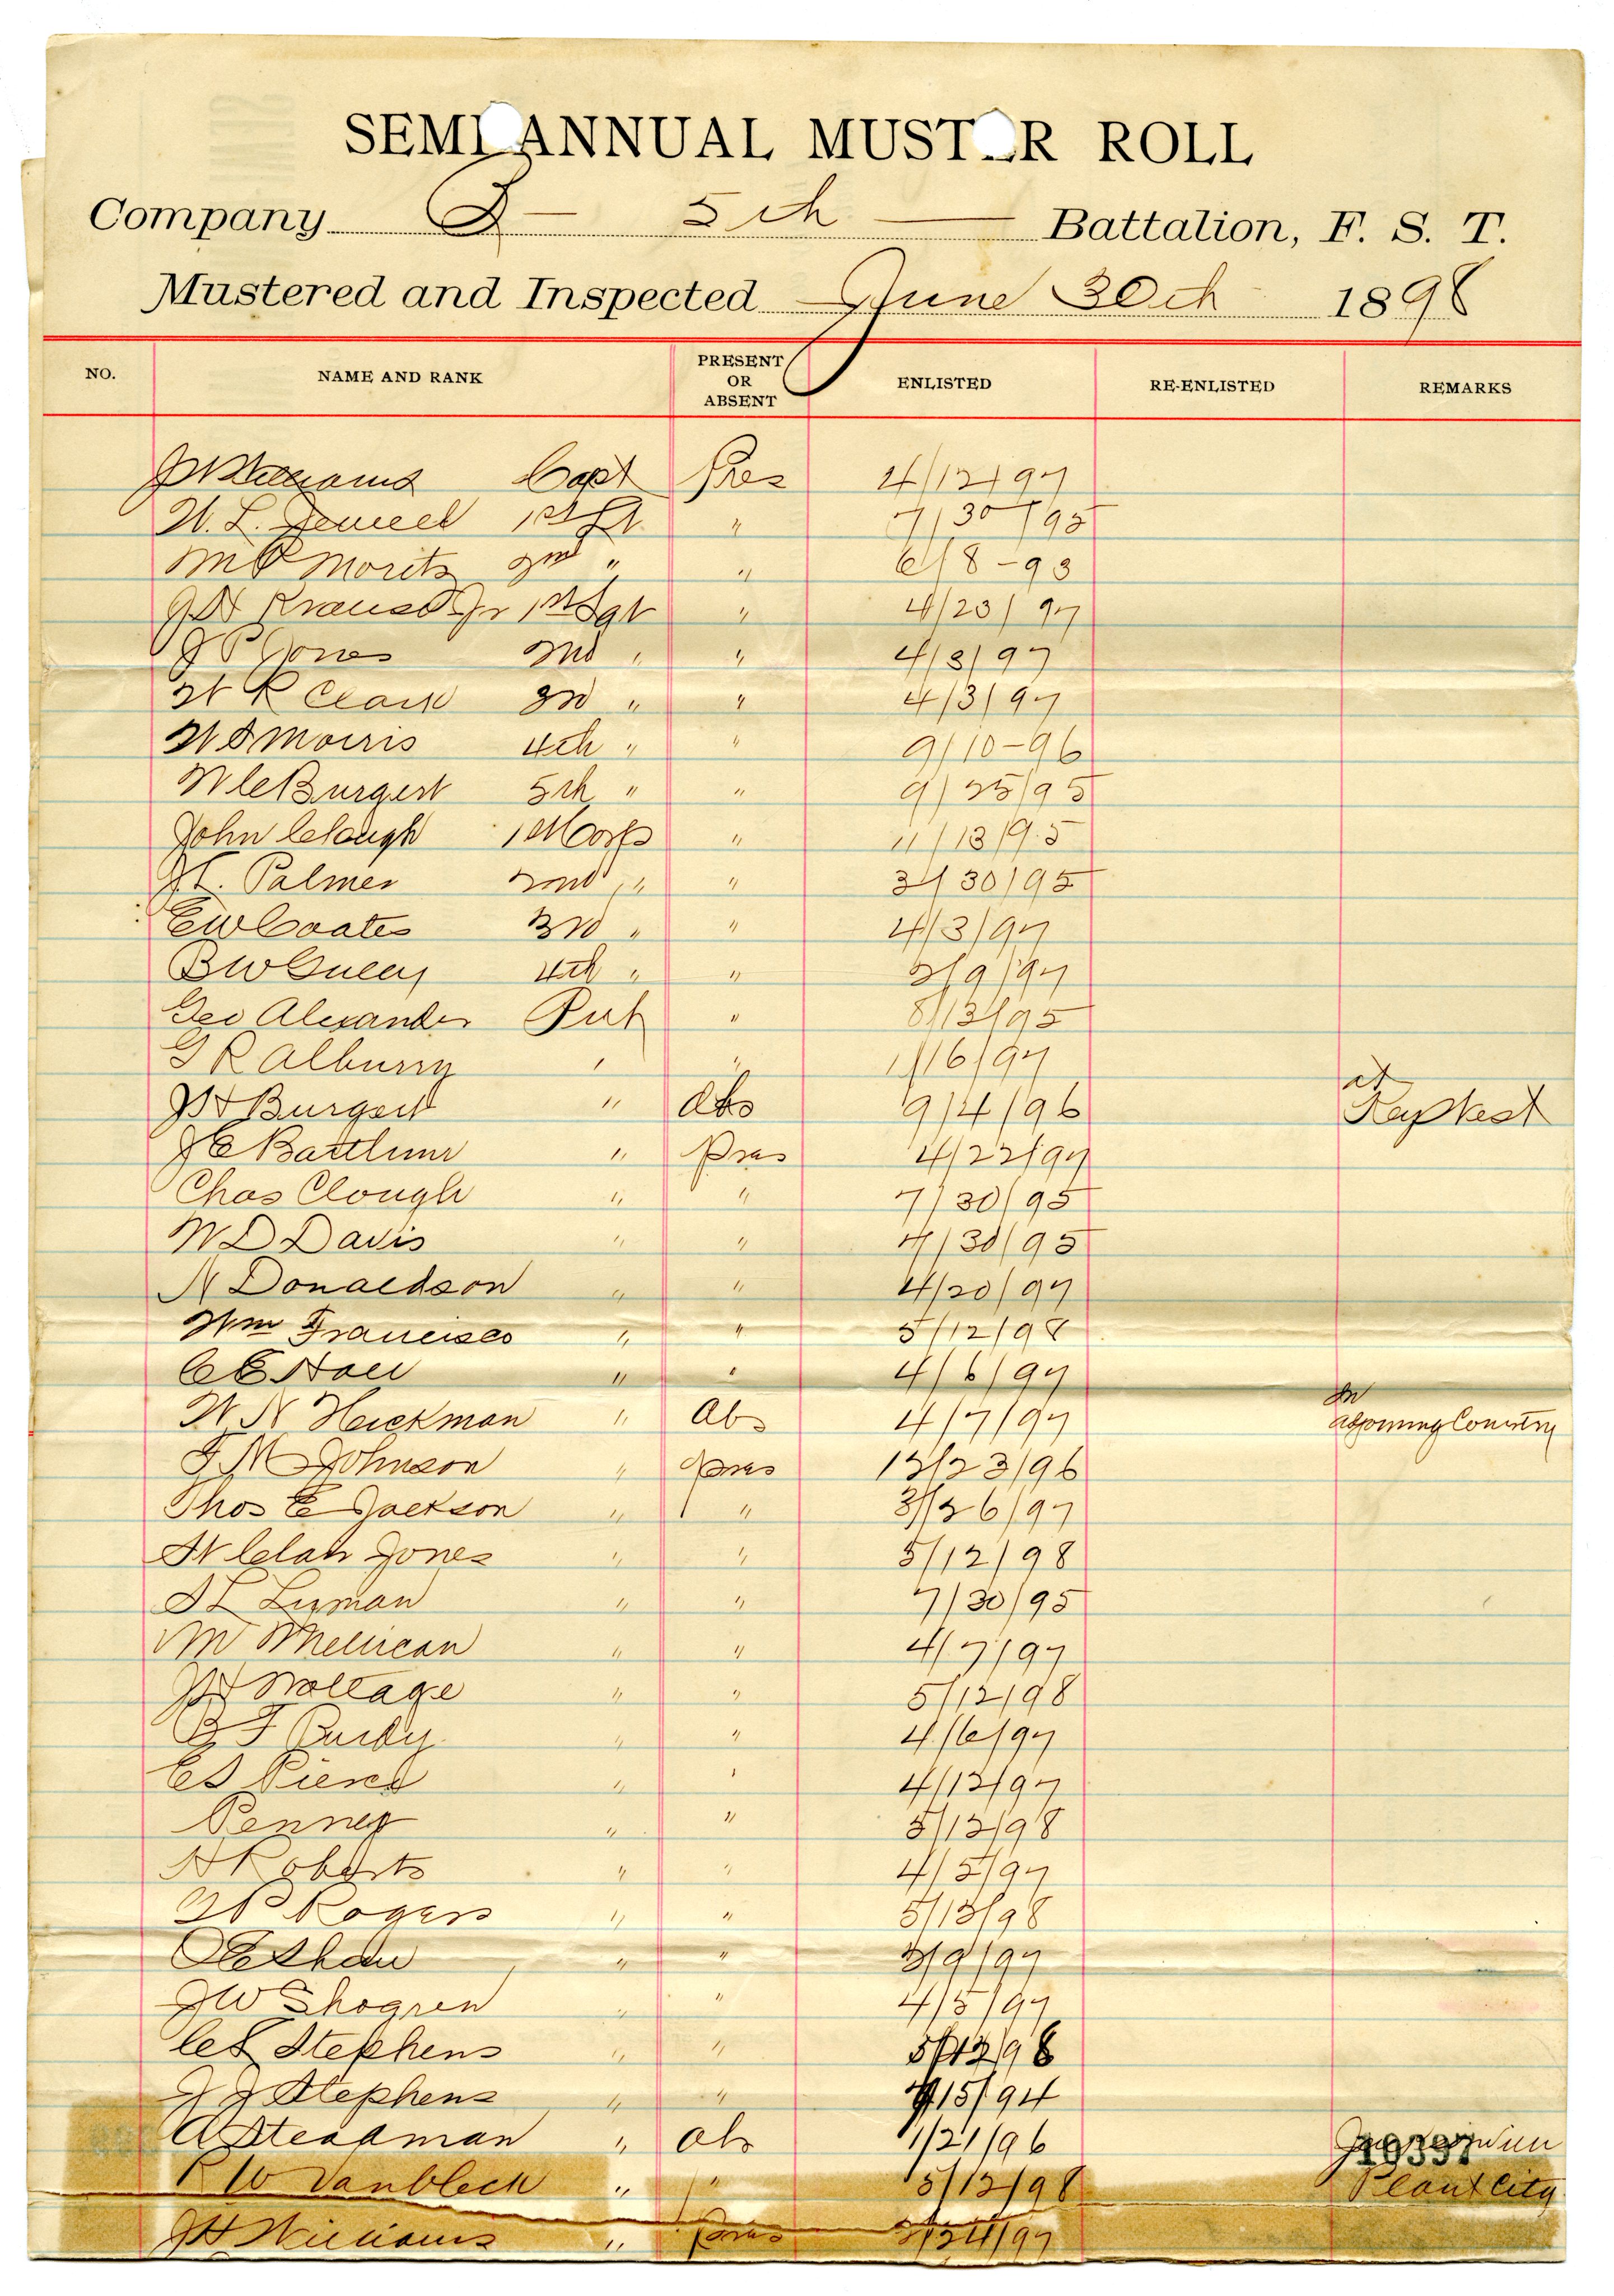 SEMI ANNUAL MUSTER ROLL
Company 5th Battalion, F. S. T.
Mustered and Inspected June 30th 1898
NO. NAME AND RANK PRESENT OR ABSENT ENLISTED RE-ENLISTED REMARKS
Williams Capt Pres 4/12/97
W. L. Jewell 1st Lt. " 7/30/95
Moritz 2nd " " 6/8-93
Krause Jr 1st Sgt " 4/23/97
J P Jones 2nd " " 4/3/97
W R Clark 3rd " " 4/3/97
W S Morris 4th " " 9/10-96
W C Burgert 5th " " 9/25/95
John Clough 1st Corp " 11/13/95
Palmer 2nd " " 3/30/95
E W Coates 3rd " " 4/3/97
B W 4th " " 3/9/97
Geo Alexander Pvt " 8/13/95
G R Alburry " " 1/16/97
J H Burgert " Abs 9/4/96 at Key West
J E Bartlum " Pres 4/22/97
Chas Clough " " 7/30/95
W D Davis " " 7/30/95
N Donaldson " " 4/20/97
Wm Francisco " " 5/12/98
C E Hall " " 4/6/97
W N Hickman " Abs 4/7/97 In adjoining Country
F M Johnson " Pres 12/23/96
Thos E Jackson " " 3/26/97
Jones " " 5/12/98
S L Lyman " " 7/30/95
M " " 4/7/97
" " 5/12/98
B F Purdy " " 4/6/97
E S Pierce " " 4/12/97
Penney " " 5/12/98
H Roberts " " 4/5/97
Rogers " " 5/13/98
Shaw " " 3/9/97
J W Shogren " " 4/5/97
C S Stephens " " 5/12/98
J J Stephens " " 15/94
A Steadman " ab 1/21/96 Jacksonville
19397
R W Vanbleck " " 5/12/98 Plant City
J H Williams " Pres 3/24/97